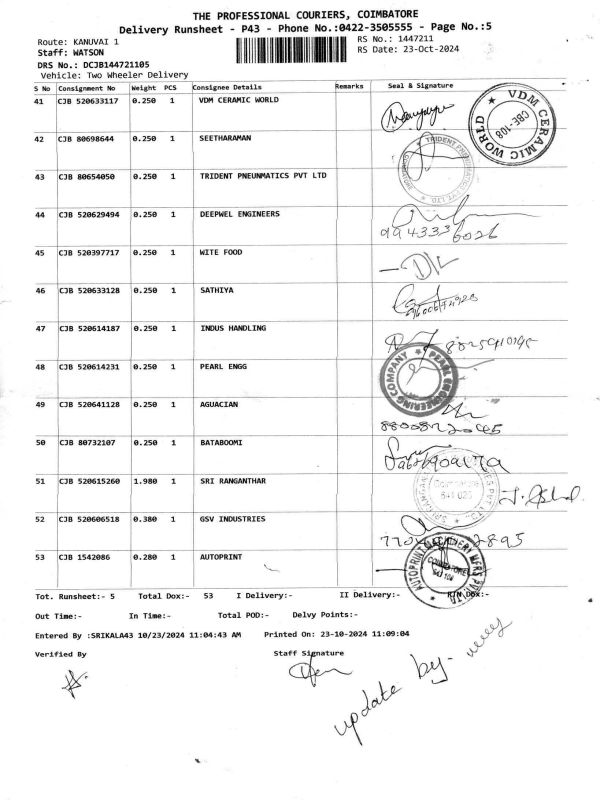 THE PROFESSIONAL COURIERS, COIMBATORE
Delivery Runsheet - P43 - Phone No.:0422-3505555 - Page No.:5
Route: KANUVAI 1
RS No.: 1447211
Staff: WATSON
RS Date: 23-Oct-2024
DRS No.: DCJB144721105
Vehicle: Two Wheeler Delivery
S No Consignment No Weight PCS Consignee Details Remarks Seal & Signature
41 CJB 520633117 0.250 1 VDM CERAMIC WORLD
VDM CERAMIC WORLD
CBE-108
42 CJB 80698644 0.250 1 SEETHARAMAN
43 CJB 80654050 0.250 1 TRIDENT PNEUNMATICS PVT LTD
44 CJB 520629494 0.250 1 DEEPWEL ENGINEERS
45 CJB 520397717 0.250 1 WITE FOOD
46 CJB 520633128 0.250 1 SATHIYA
47 CJB 520614187 0.250 1 INDUS HANDLING
48 CJB 520614231 0.250 1 PEARL ENGG
PEARL ENGINEERING COMPANY
49 CJB 520641128 0.250 1 AGUACIAN
50 CJB 80732107 0.250 1 BATABOOMI
51 CJB 520615260 1.980 1 SRI RANGANTHAR
52 CJB 520606518 0.380 1 GSV INDUSTRIES
53 CJB 1542086 0.280 1 AUTOPRINT
Tot. Runsheet:- 5 Total Dox:- 53 I Delivery:- II Delivery:- RTN Dox:-
Out Time:- In Time:- Total POD:- Delvy Points:-
Entered By :SRIKALA43 10/23/2024 11:04:43 AM Printed On: 23-10-2024 11:09:04
Verified By Staff Signature
update by-